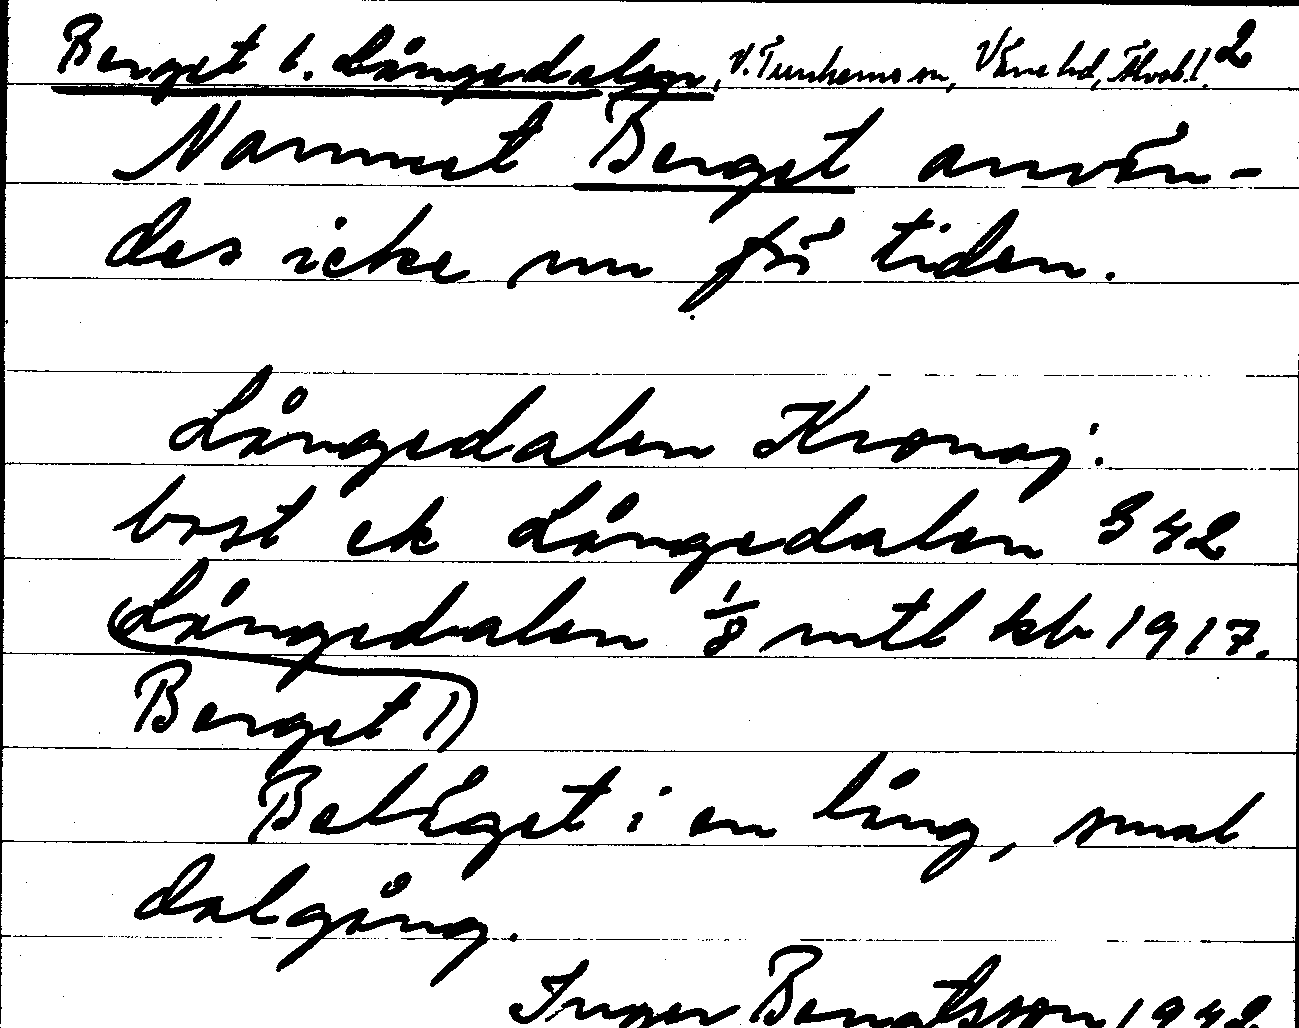 Berget l. Långedalen, V. Tunhems sn, Väne hd, Älvsb.l. 2
Namnet Berget använ-
des icke nu för tiden.
Långedalen Kronoj:
bost ek Långedalen S 42
Långedalen 1/8 mtl kb 1917.
Berget 1)
Beläget i en lång, smal
dalgång.
Inger Bengtsson 1942